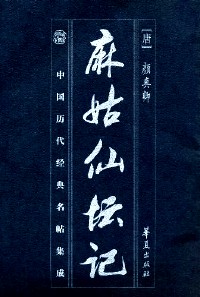 [唐] 颜真卿
麻姑仙坛记
中国历代经典名帖集成
华夏出版社